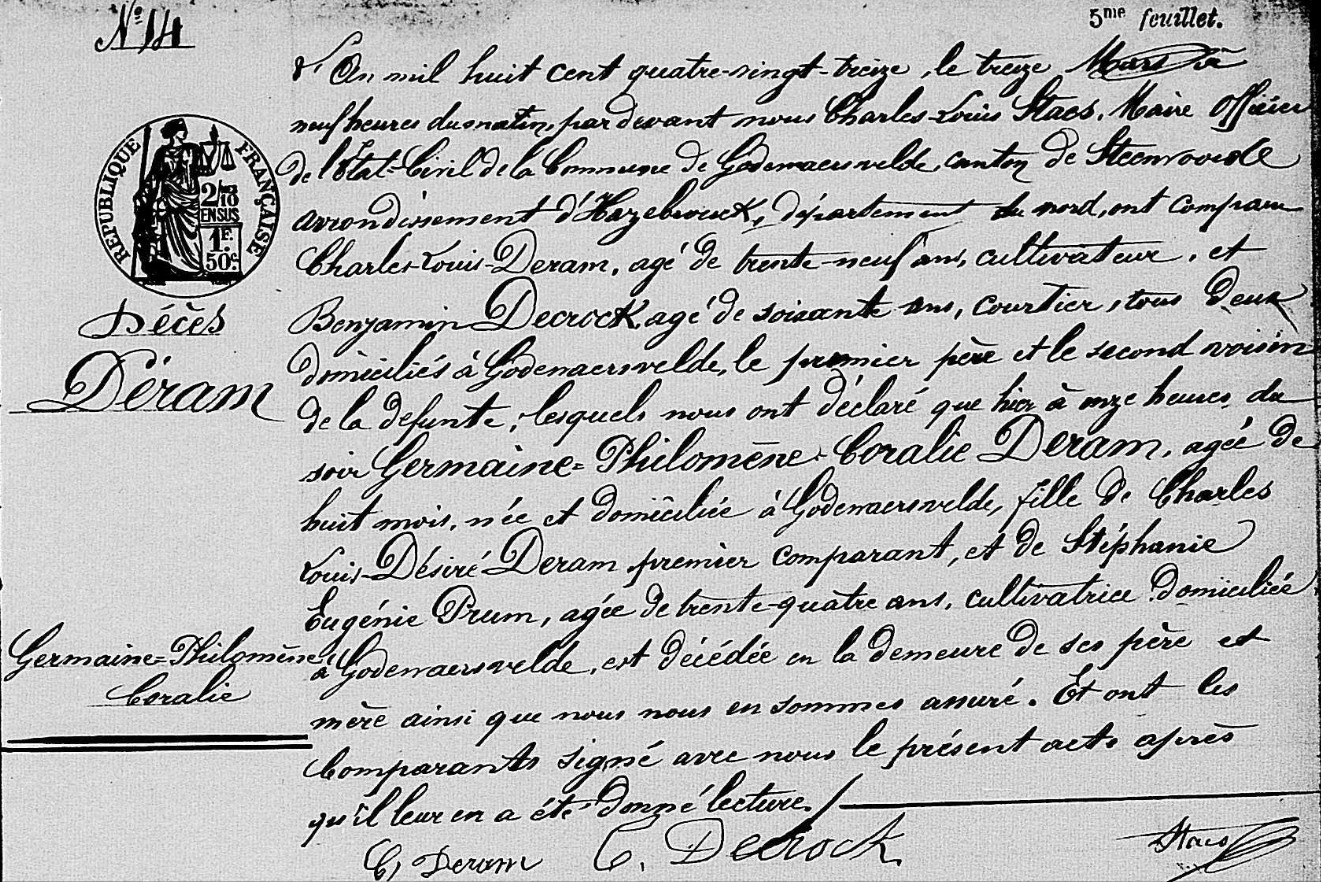 N° 14
5me feuillet.
L'An mil huit cent quatre-vingt-treize, le treize Mars à
neuf heures du matin, par devant nous Charles-Louis Staes, Maire Officier
de l'Etat-Civil de la Commune de Godewaersvelde, canton de Steenvoorde
arrondissement d'Hazebrouck, département du nord, ont comparu
Charles-Louis-Deram, agé de trente-neuf ans, cultivateur, et
Benjamin Decrock agé de soixante ans, courtier, tous deux
domiciliés à Godewaersvelde, le premier père et le second voisin
de la defunte, lesquels nous ont déclaré que hier à onze heures du
soir Germaine=Philomène-Coralie Deram, agée de
huit mois, née et domiciliée à Godewaersvelde, fille de Charles
Louis-Désiré-Deram premier comparant, et de Stéphanie
Eugénie Prum, agée de trente-quatre ans, cultivatrice domiciliée
à Godewaersvelde, est décédée en la demeure de ses père et
mère ainsi que nous nous en sommes assuré. Et ont les
Comparants signé avec nous le présent acte après
qu'il leur en a été donné lecture./
C, Deram
C. Decrock
Staes
REPUBLIQUE FRANÇAISE
2/10
EN SUS
1F.
50c.
Décès
Déram
Germaine=Philomène
Coralie